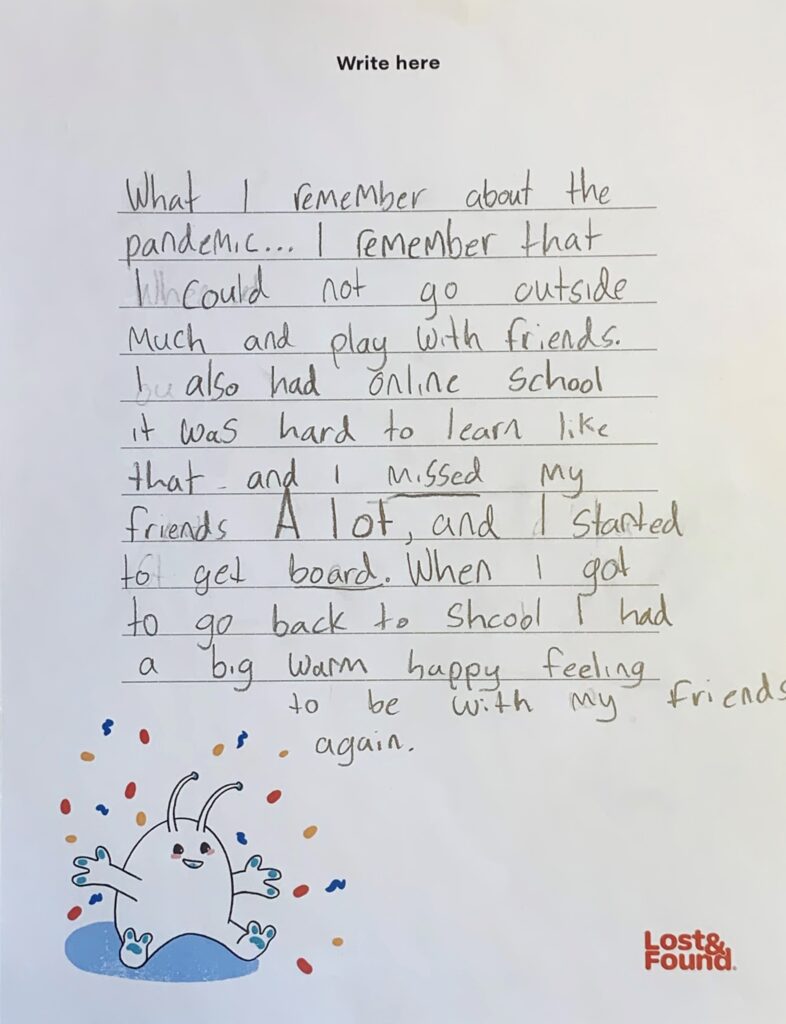 Write here
What I remember about the
pandemic... I remember that
I could not go outside
Much and play with friends.
I also had online school
it was hard to learn like
that and I missed my
friends A lot, and I started
to get board. When I got
to go back to Shcool I had
a big warm happy feeling
to be with my friends
again.
Lost&
Found.